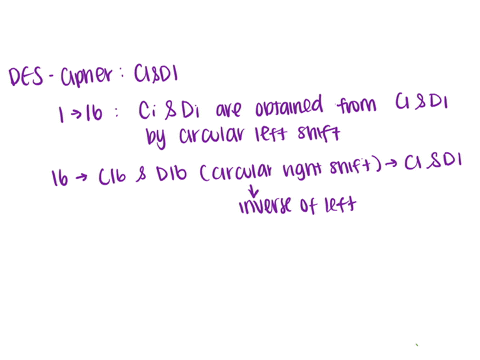 DES - Cipher : C1&D1
1 → 16 : Ci & Di are obtained from C1 & D1
by circular left shift
16 → C16 & D16 (circular right shift) → C1 & D1
↓
inverse of left